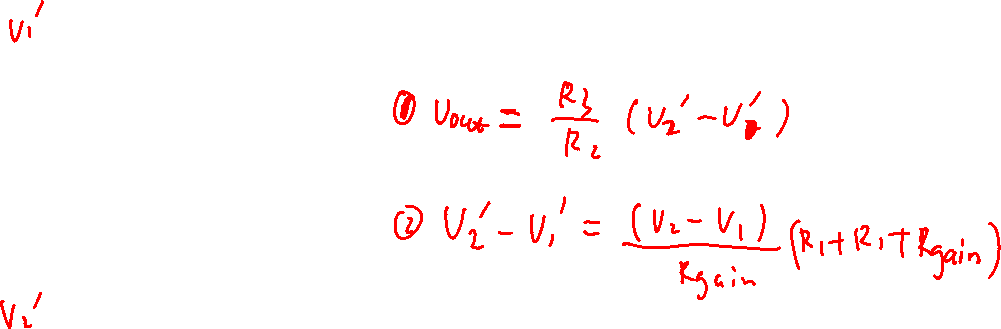 V₁'
① Vout = R3/R2 (V₂' - V')
② V₂' - V₁' = (V₂ - V₁)/Rgain (R₁ + R₁ + Rgain)
V₂'